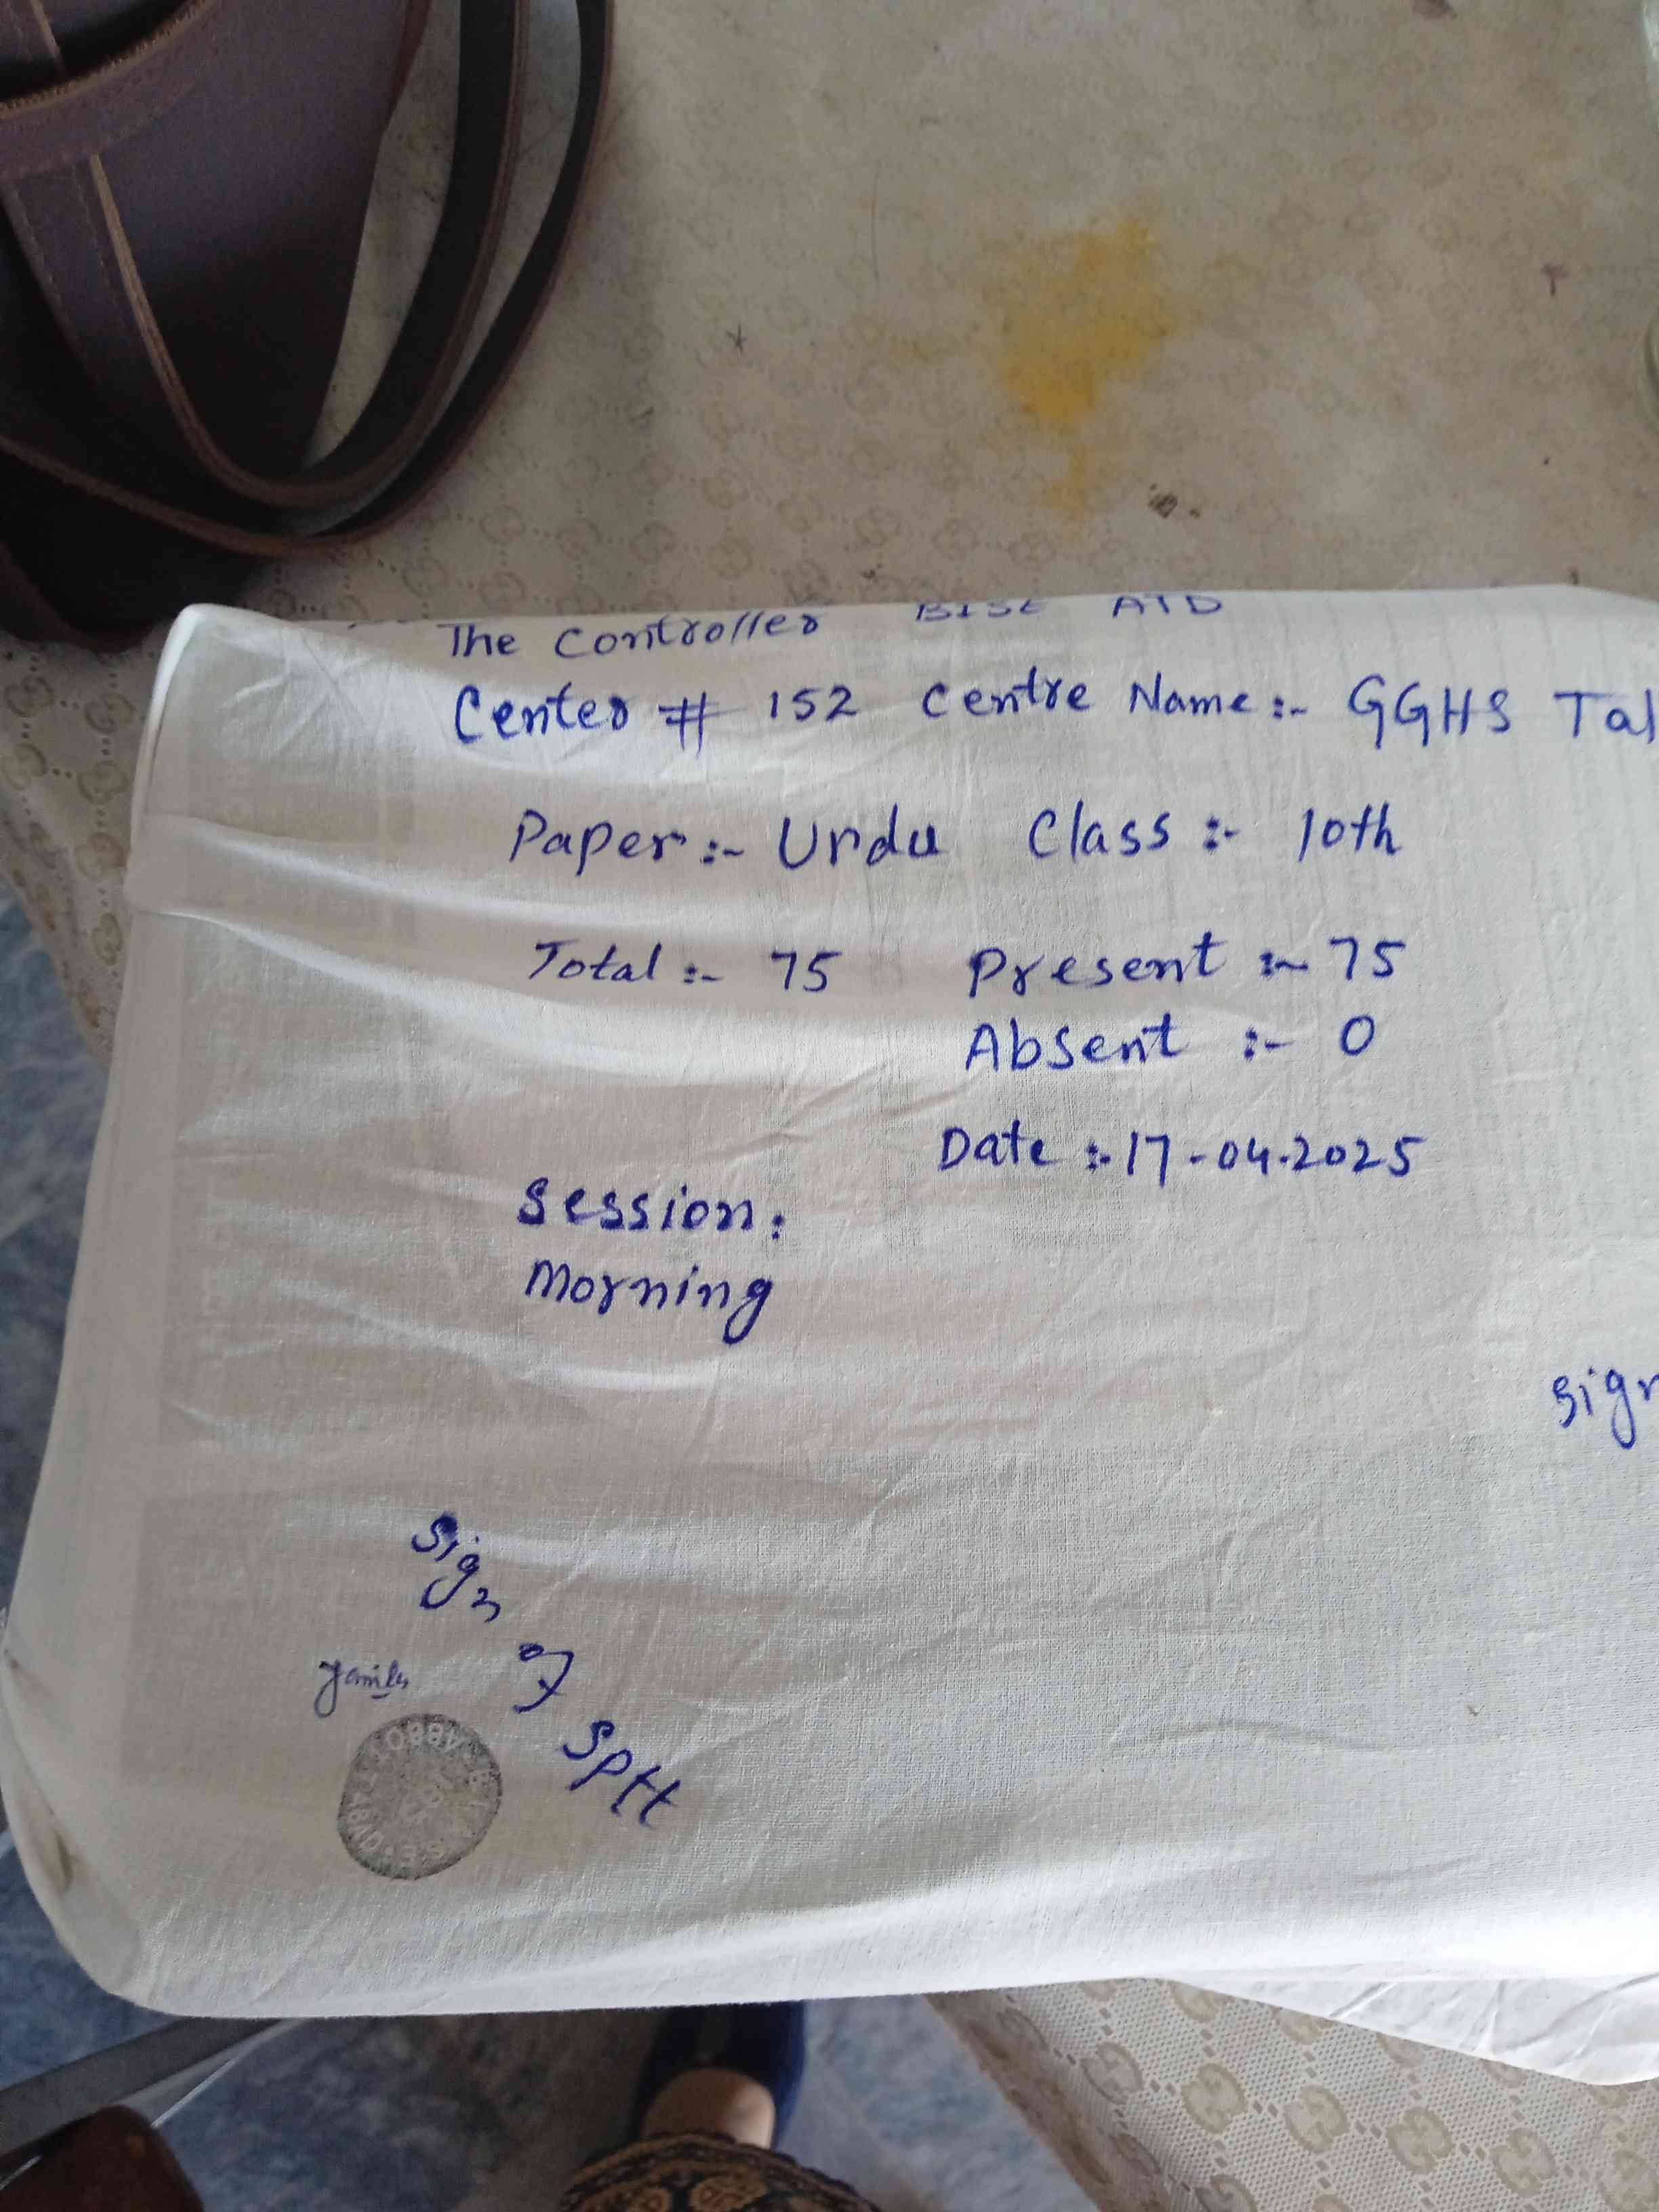 The Controller BISE ATD
Center # 152 Centre Name :- GGHS Tal
Paper :- Urdu Class :- 10th
Total :- 75 Present :- 75
Absent :- 0
Date :- 17-04-2025
Session:
Morning
Sign
Sign of SPtt